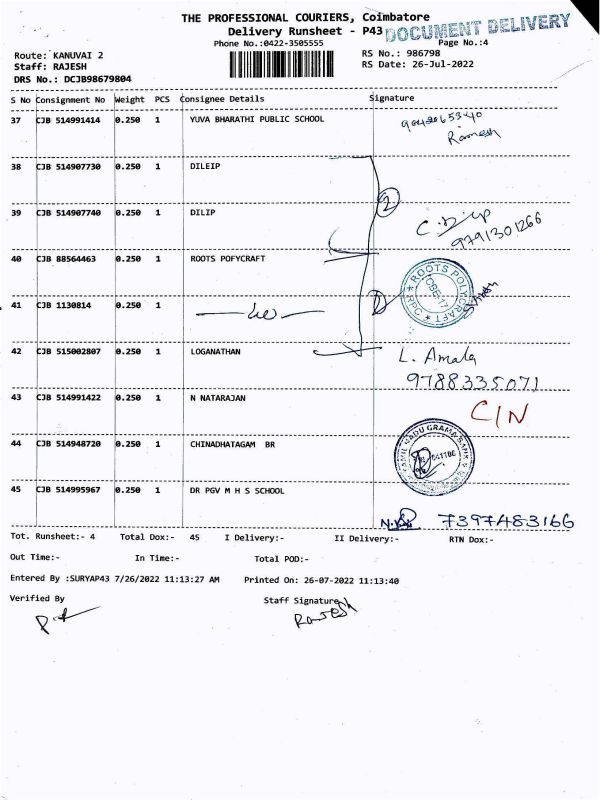 THE PROFESSIONAL COURIERS, Coimbatore
Delivery Runsheet - P43
DOCUMENT DELIVERY
Phone No.:0422-3505555
Page No.:4
Route: KANUVAI 2
RS No.: 986798
Staff: RAJESH
RS Date: 26-Jul-2022
DRS No.: DCJB98679804
S No Consignment No Weight PCS Consignee Details Signature
37 CJB 514991414 0.250 1 YUVA BHARATHI PUBLIC SCHOOL
Ramesh
38 CJB 514907730 0.250 1 DILEIP
2
39 CJB 514907740 0.250 1 DILIP
C. Dilip
9791301266
40 CJB 88564463 0.250 1 ROOTS POFYCRAFT
ROOTS POLYCRAFT
RPC
CBE-17
41 CJB 1130814 0.250 1
42 CJB 515002807 0.250 1 LOGANATHAN
L. Amala
9788335071
43 CJB 514991422 0.250 1 N NATARAJAN
C/N
44 CJB 514948720 0.250 1 CHINADHATAGAM BR
TAMIL NADU GRAMA BANK
45 CJB 514995967 0.250 1 DR PGV M H S SCHOOL
7397483166
Tot. Runsheet:- 4 Total Dox:- 45 I Delivery:- II Delivery:- RTN Dox:-
Out Time:- In Time:- Total POD:-
Entered By :SURYAP43 7/26/2022 11:13:27 AM Printed On: 26-07-2022 11:13:40
Verified By Staff Signature
Rajesh